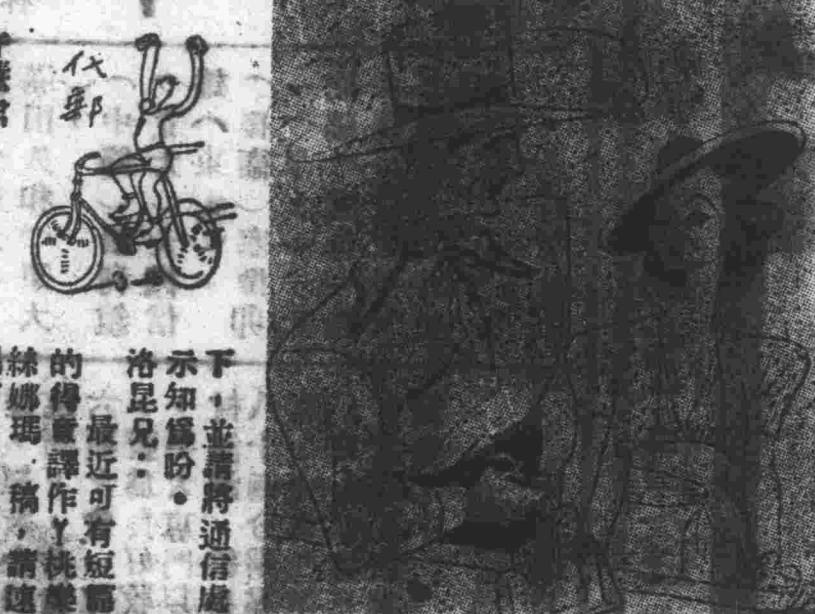 代郵
下，並請將通信處
示知爲盼。
洛昆兄：
最近可有短篇
的得意譯作丫桃樂
絲娜瑪．稿，請速